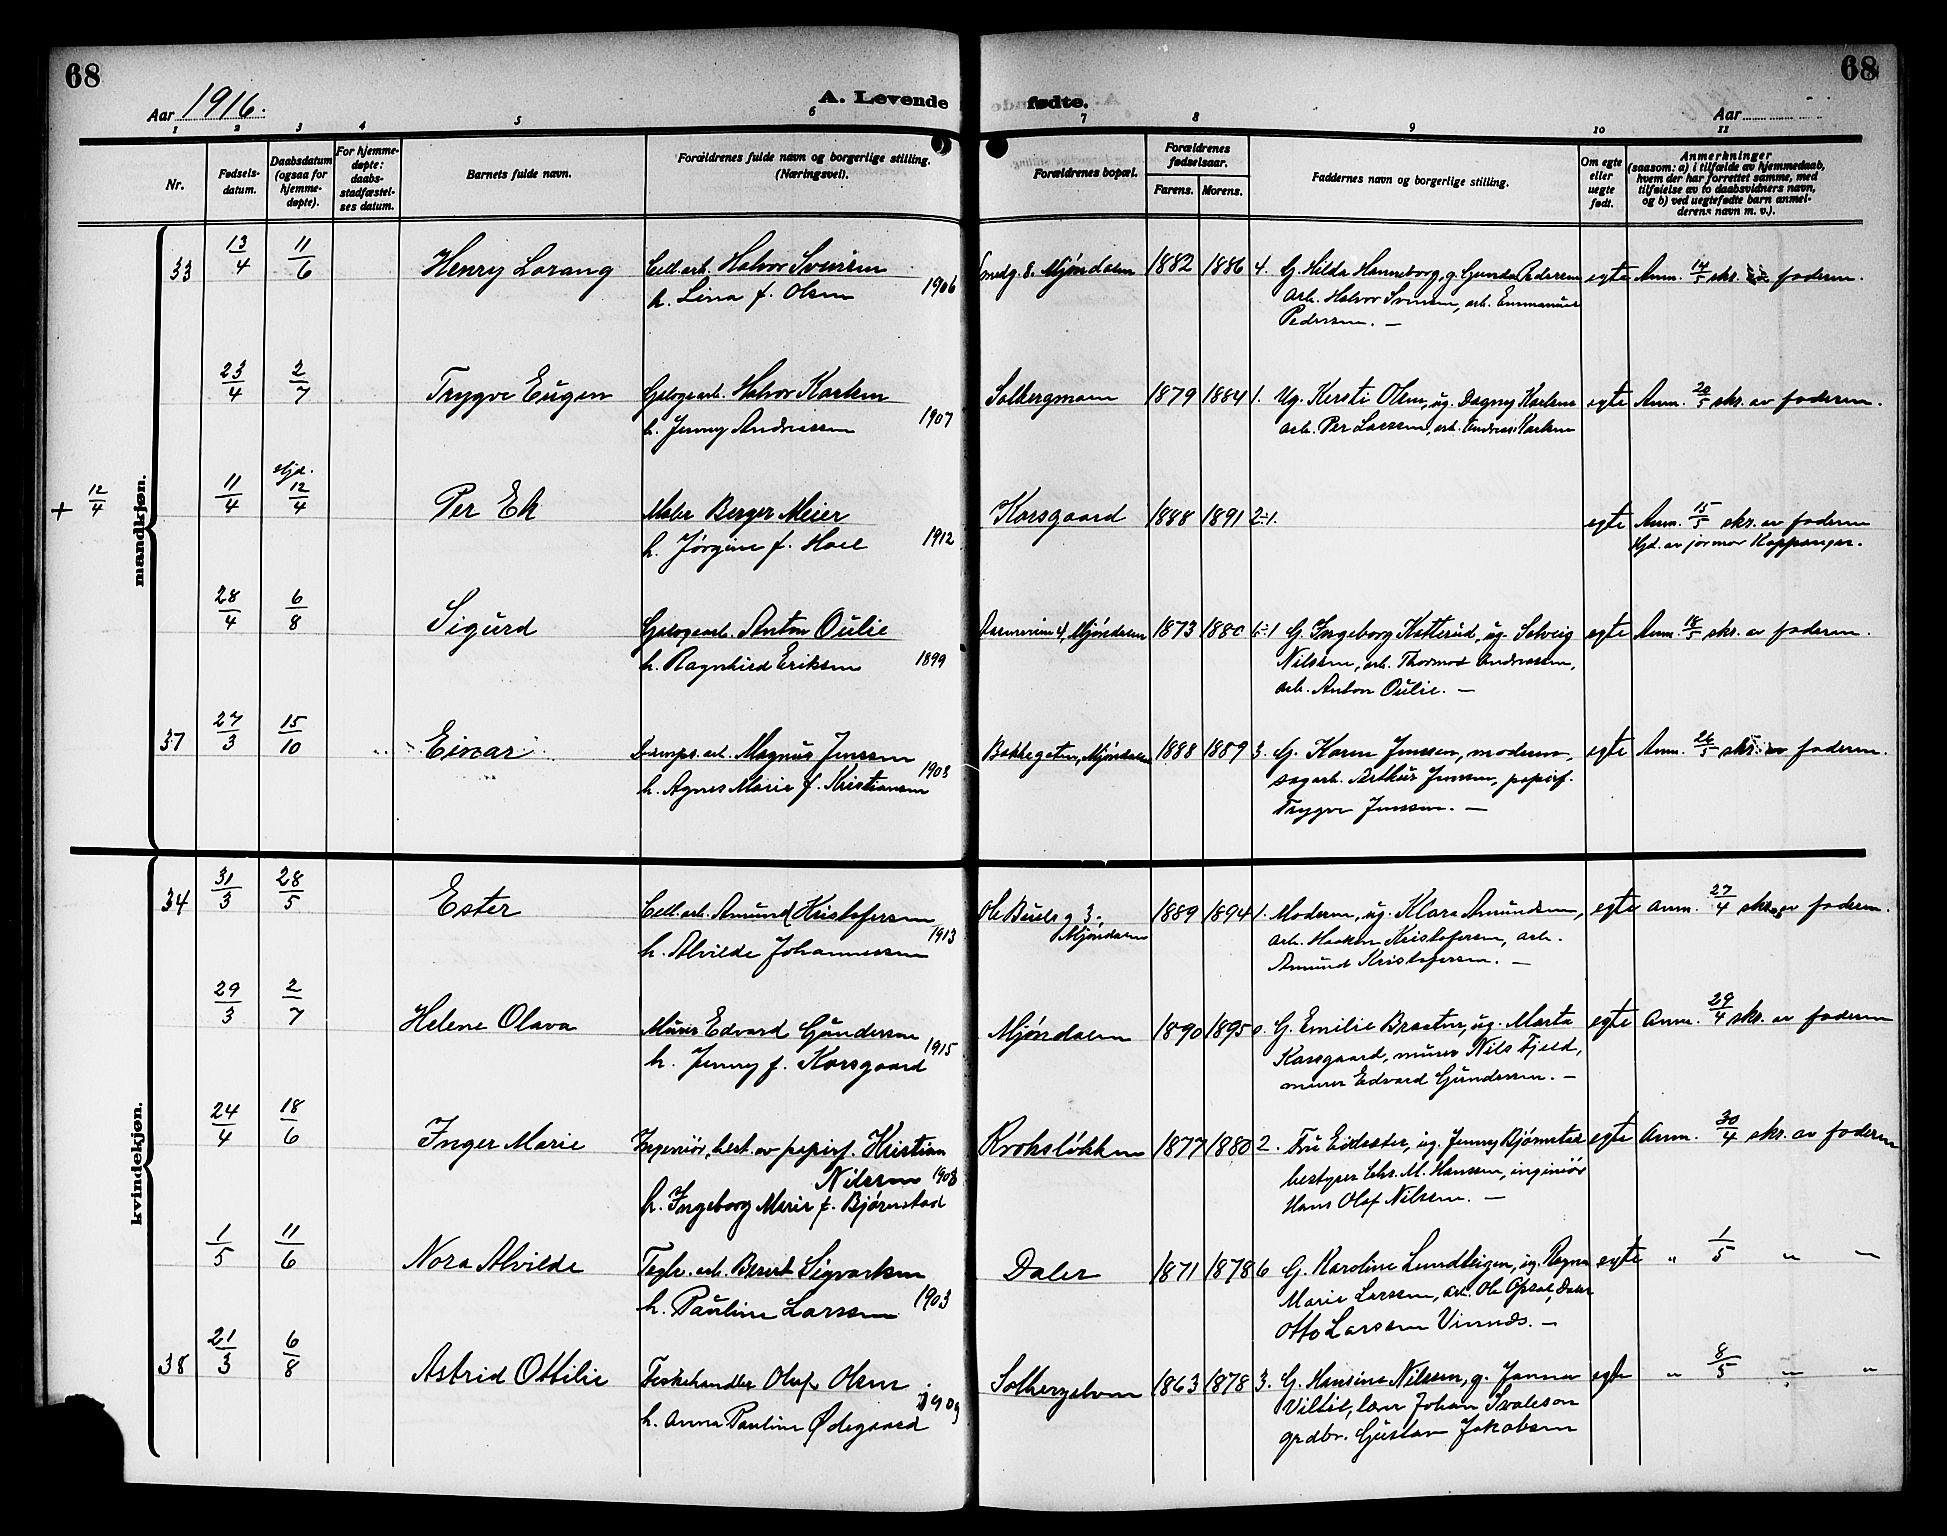 68
68
Aar 1916.
A. Levende fødte.
Aar
1 2 3 4 5 6 7 8 9 10 11
Nr.
Fødsels-
datum.
Daabsdatum
(ogsaa for
hjemme-
døpte).
For hjemme-
døpte:
daabs-
stadfæstel-
ses datum.
Barnets fulde navn.
Forældrenes fulde navn og borgerlige stilling.
(Næringsvei).
Forældrenes bopæl.
Forældrenes
fødselsaar.
Farens. Morens.
Faddernes navn og borgerlige stilling.
Om egte
eller
uegte
født.
Anmerkninger
(saasom: a) i tilfælde av hjemmedaab,
hvem der har forrettet samme, med
tilføielse av to daabsvidners navn,
og b) ved uegtefødte barn anmel-
derens navn m. v.).
mandkjøn.
33 13/4 11/6 Henry Lorang Cell. arb. Halvor Svensen Mjøndalen 1882 1886 4. G. Hilda Hanneborg, g. Gunda Pedersen egte Anm. 14/5 skr. faderen.
h. Lina f. Olsen 1906 arb. Halvor Svensen, arb. Emmanuel
Pedersen. —
23/4 2/7 Trygve Eugen Halvor Karlsen Solbergmoen 1879 1884 1. Ug. Kersti Olsen, ug. Dagny Karlsen egte Anm. 20/5 skr. av faderen.
h. Jenny Andreassen 1907 arb. Per Larssen, arb. Andreas Karlsen
+ 12/4 11/4 hjd. 12/4 Per Ek Maler Berger Meier Korsgaard 1888 1891 2÷1. egte Anm. 15/5 skr. av faderen
h. Jørgine f. Hoel 1912 Hjd. av jormor Koppangen.
28/4 6/8 Sigurd Anton Oulie 4, Mjøndalen 1873 1880 ÷1 G. Ingeborg Kotterud, ug. Solveig egte Anm. 18/5 skr. av faderen.
h. Ragnhild Eriksen 1899 Nilssen, arb. Thormod Andreassen,
arb. Anton Oulie. —
37 27/3 15/10 Einar arb. Magnus Jenssen Bakkegaten, Mjøndalen 1888 1889 3. G. Karen Jenssen, moderen, egte Anm. 26/5 skr. av faderen.
h. Agnes Marie f. Kristiansen 1908 sagarb. Arthur Jenssen, papirf.
Trygve Jenssen. —
kvindekjøn.
34 31/3 28/5 Ester Cell. arb. Amund Kristofersen Ole Buels g 3. 1889 1894 1. Moderen, ug. Klara Amundsen, egte Anm. 27/4 skr. av faderen.
h. Alvilde Johannessen 1913 Mjøndalen arb. Haakon Kristofersen, arb.
Amund Kristofersen. —
29/3 2/7 Helene Olava Murer Edvard Gundersen Mjøndalen 1890 1895 0. G. Emilie Braaten, ug. Marta egte Anm. 29/4 skr. av faderen
h. Jenny f. Korsgaard 1915 Korsgaard, murer Nils Fjeld,
murer Edvard Gundersen. —
24/4 18/6 Inger Marie Ingeniør, best. av papirf. Kristian Kroksløkken 1877 1880 2. Fru Eidsæter, ug. Jenny Bjørnstad egte Anm. 30/4 skr. av faderen
Nilssen 1908 bestyrer Chr. M. Hansen, ingeniør
h. Ingeborg Marie f. Bjørnstad Hans Olaf Nilssen. —
1/5 11/6 Nora Alvilde Tegls. arb. Berent Sigvartsen Daler 1871 1878 6 G. Karoline Lundteigen, ug. Ragna egte " 1/5 " "
h. Pauline Larssen 1903 Marie Larssen, arb. Ole Opsal, Daler
Otto Larssen Vinnæs. —
38 21/3 6/8 Astrid Ottilie Fiskehandler Oluf Olsen Solbergelven 1863 1878 3. G. Hansine Nilssen, g. Janna egte " 8/5 " "
h. Anna Pauline Ødegaard 1909 Johan Svaleson
grdbr. Gustav Jakobsen